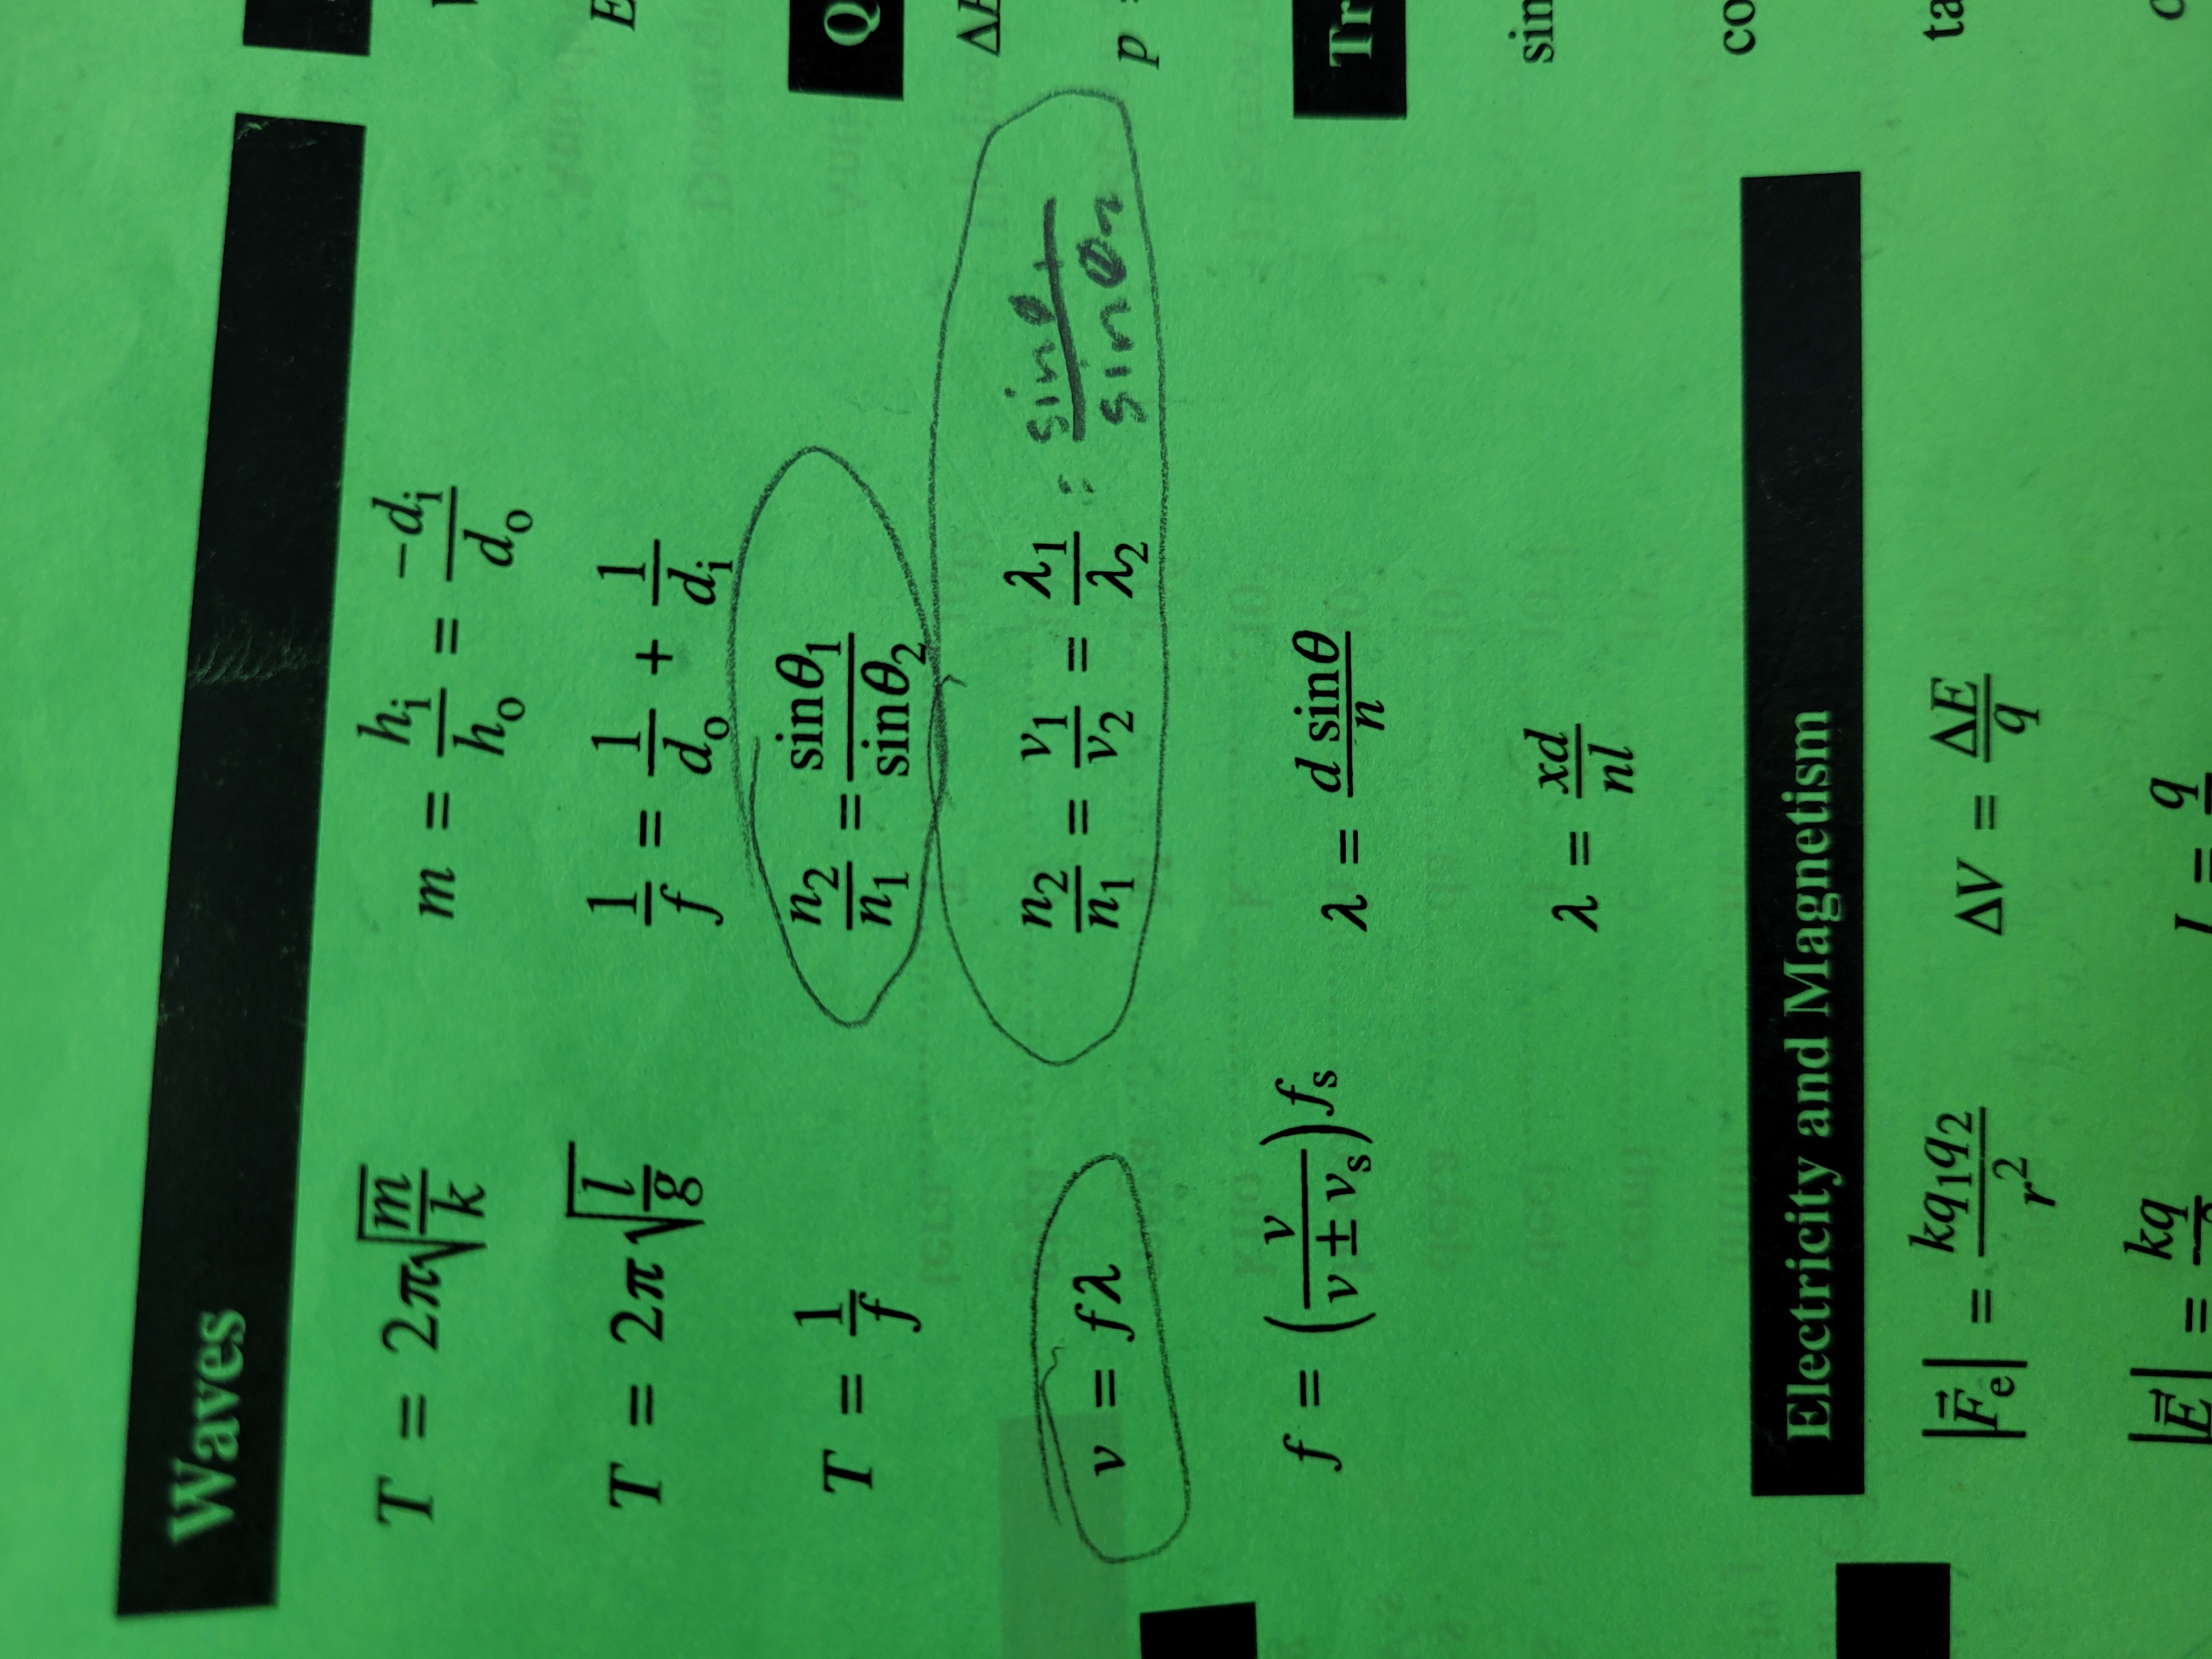 Waves
T = 2π√(m/k)
m = hᵢ/hₒ = −dᵢ/dₒ
T = 2π√(l/g)
1/f = 1/dₒ + 1/dᵢ
T = 1/f
n₂/n₁ = sinθ₁/sinθ₂
v = fλ
n₂/n₁ = v₁/v₂ = λ₁/λ₂ = sin / sin
f = (v/(v ± vₛ))fₛ
λ = d sinθ/n
λ = xd/nl
Electricity and Magnetism
|F⃗ₑ| = kq₁q₂/r²
ΔV = ΔE/q
|E⃗| = kq
I = q
Q
p
Tr
sin
co
ta